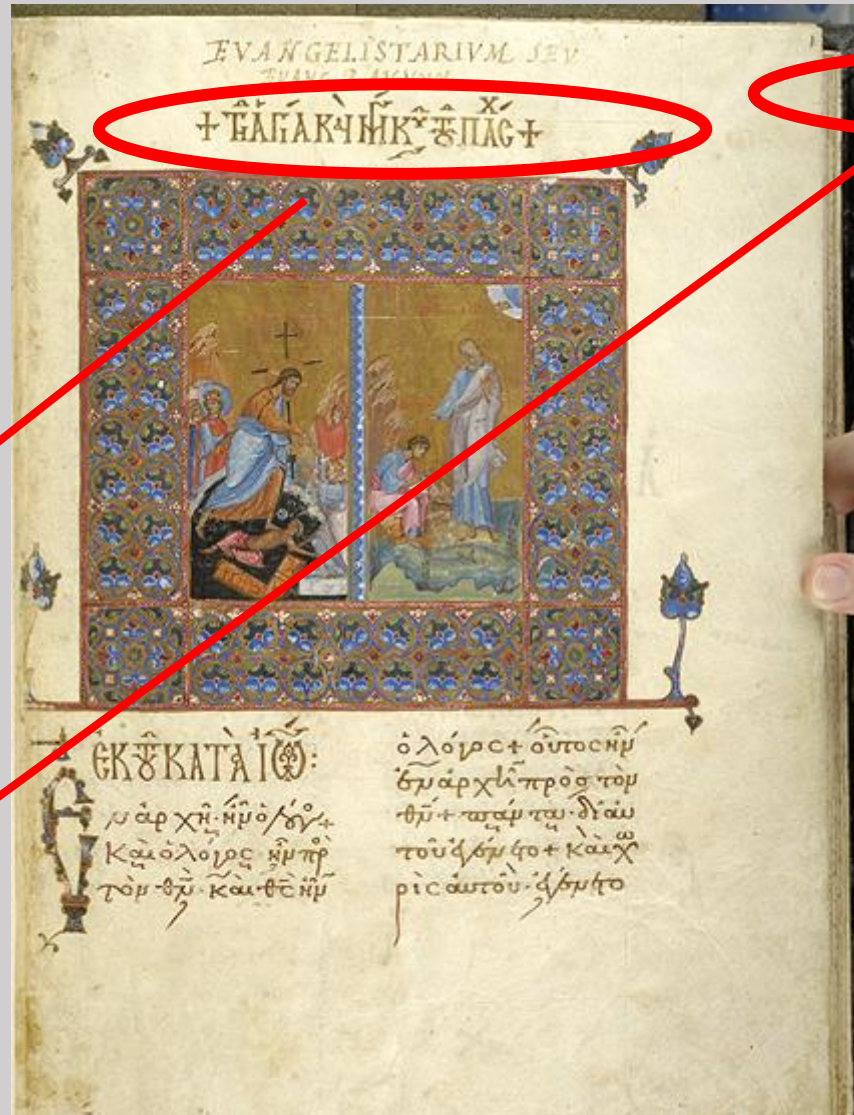 EVANGELISTARIVM SEV
ἐκ τοῦ κατὰ Ἰω:
Ἐν ἀρχῇ· ἦν ὁ λόγο+
Καὶ ὁ λόγος ἦν πρ
τὸν θν̄· καὶ θς̄ ἦν
ὁ λόγος+ οὗτος ἦν
ἐν ἀρχῆ πρὸς τὸν
θν̄+ πάντα δι' αυ
τοῦ ἐγένετο+ καὶ χω
ρὶς αὐτοῦ· ἐγένετο